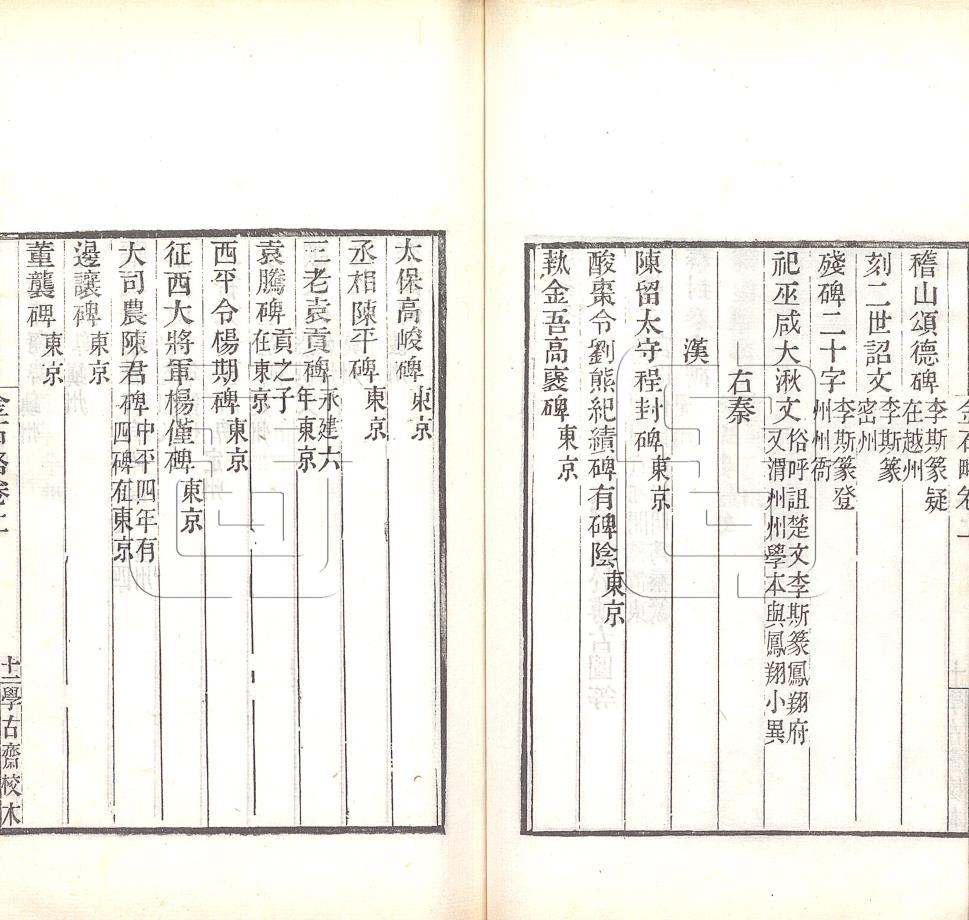 金石略卷上
稽山頌德碑李斯篆疑在越州
刻二世詔文李斯篆密州
殘碑二十字李斯篆登州州衙
祀巫咸大湫文俗呼詛楚文李斯篆鳳翔府又渭州州學本與鳳翔小異
右秦
漢
陳留太守程封碑東京
酸棗令劉熊紀績碑有碑陰東京
執金吾高褎碑東京
太保高峻碑東京
丞相陳平碑東京
三老袁貢碑永建六年東京
袁騰碑貢之子在東京
西平令楊期碑東京
征西大將軍楊僅碑東京
大司農陳君碑中平四年有四碑在東京
邊讓碑東京
董襲碑東京
金石略卷上
十二學古齋校本